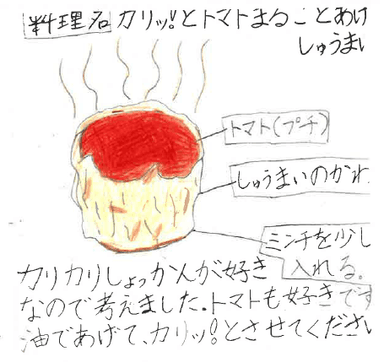 料理名 カリッ!とトマトまるごとあげ
しゅうまい
トマト(プチ)
しゅうまいのかわ
ミンチを少し
入れる。
カリカリしょっかんが好き
なので考えました。トマトも好きです
油であげて、カリッ!とさせてください